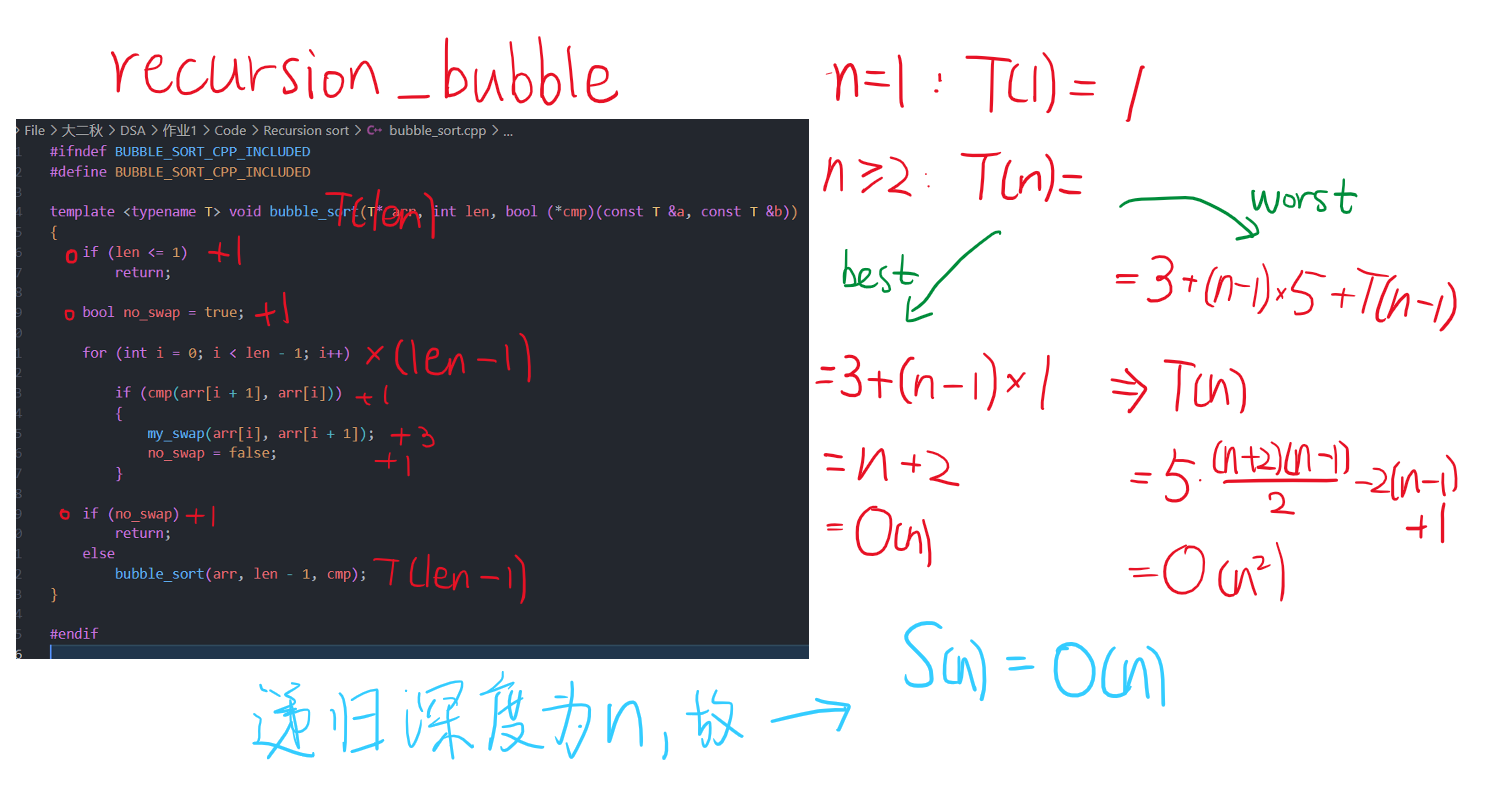 recursion_bubble
File > 大二秋 > DSA > 作业1 > Code > Recursion sort > C++ bubble_sort.cpp > ...
#ifndef BUBBLE_SORT_CPP_INCLUDED
#define BUBBLE_SORT_CPP_INCLUDED
template <typename T> void bubble_sort(T* arr, int len, bool (*cmp)(const T &a, const T &b))
T(len)
{
if (len <= 1) +1
return;
bool no_swap = true; +1
for (int i = 0; i < len - 1; i++) ×(len-1)
if (cmp(arr[i + 1], arr[i])) +1
{
my_swap(arr[i], arr[i + 1]); +3
no_swap = false; +1
}
if (no_swap) +1
return;
else
bubble_sort(arr, len - 1, cmp); T(len-1)
}
#endif
n=1: T(1)=1
n≥2: T(n)=
best
=3+(n-1)×1
=n+2
=O(n)
worst
=3+(n-1)×5+T(n-1)
⇒T(n)
=5·(n+2)(n-1)/2-2(n-1)+1
=O(n²)
递归深度为n,故→
S(n)=O(n)